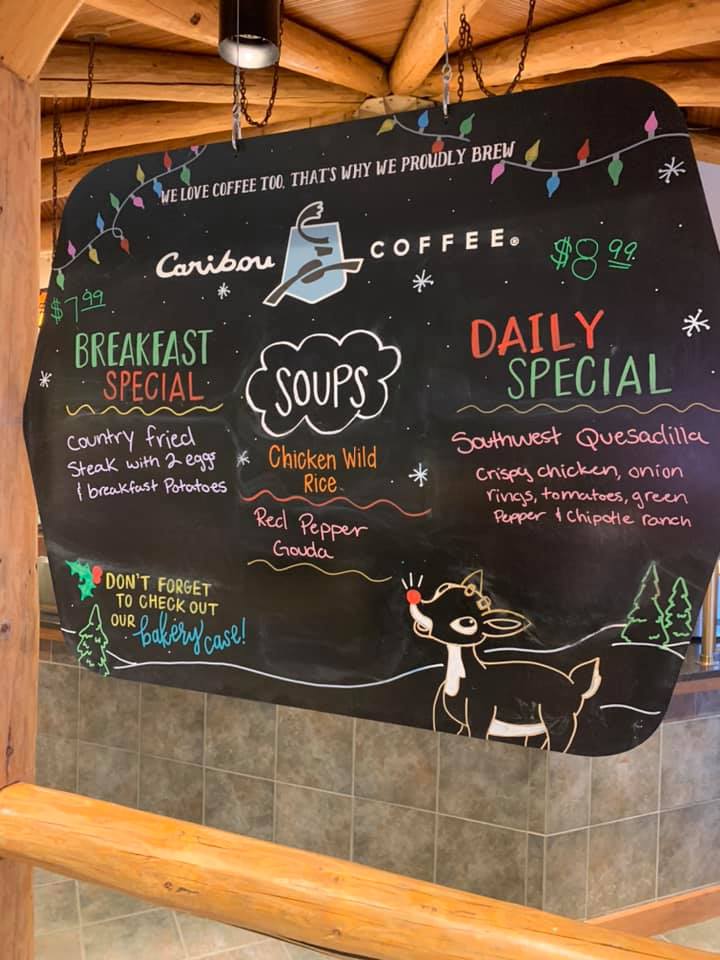 WE LOVE COFFEE TOO, THAT'S WHY WE PROUDLY BREW
Caribou COFFEE®
$7.99
BREAKFAST
SPECIAL
Country fried
Steak with 2 eggs
& breakfast Potatoes
SOUPS
Chicken Wild
Rice
Red Pepper
Gouda
$8.99
DAILY
SPECIAL
Southwest Quesadilla
Crispy chicken, onion
rings, tomatoes, green
Pepper & Chipotle ranch
DON'T FORGET
TO CHECK OUT
OUR bakery case!